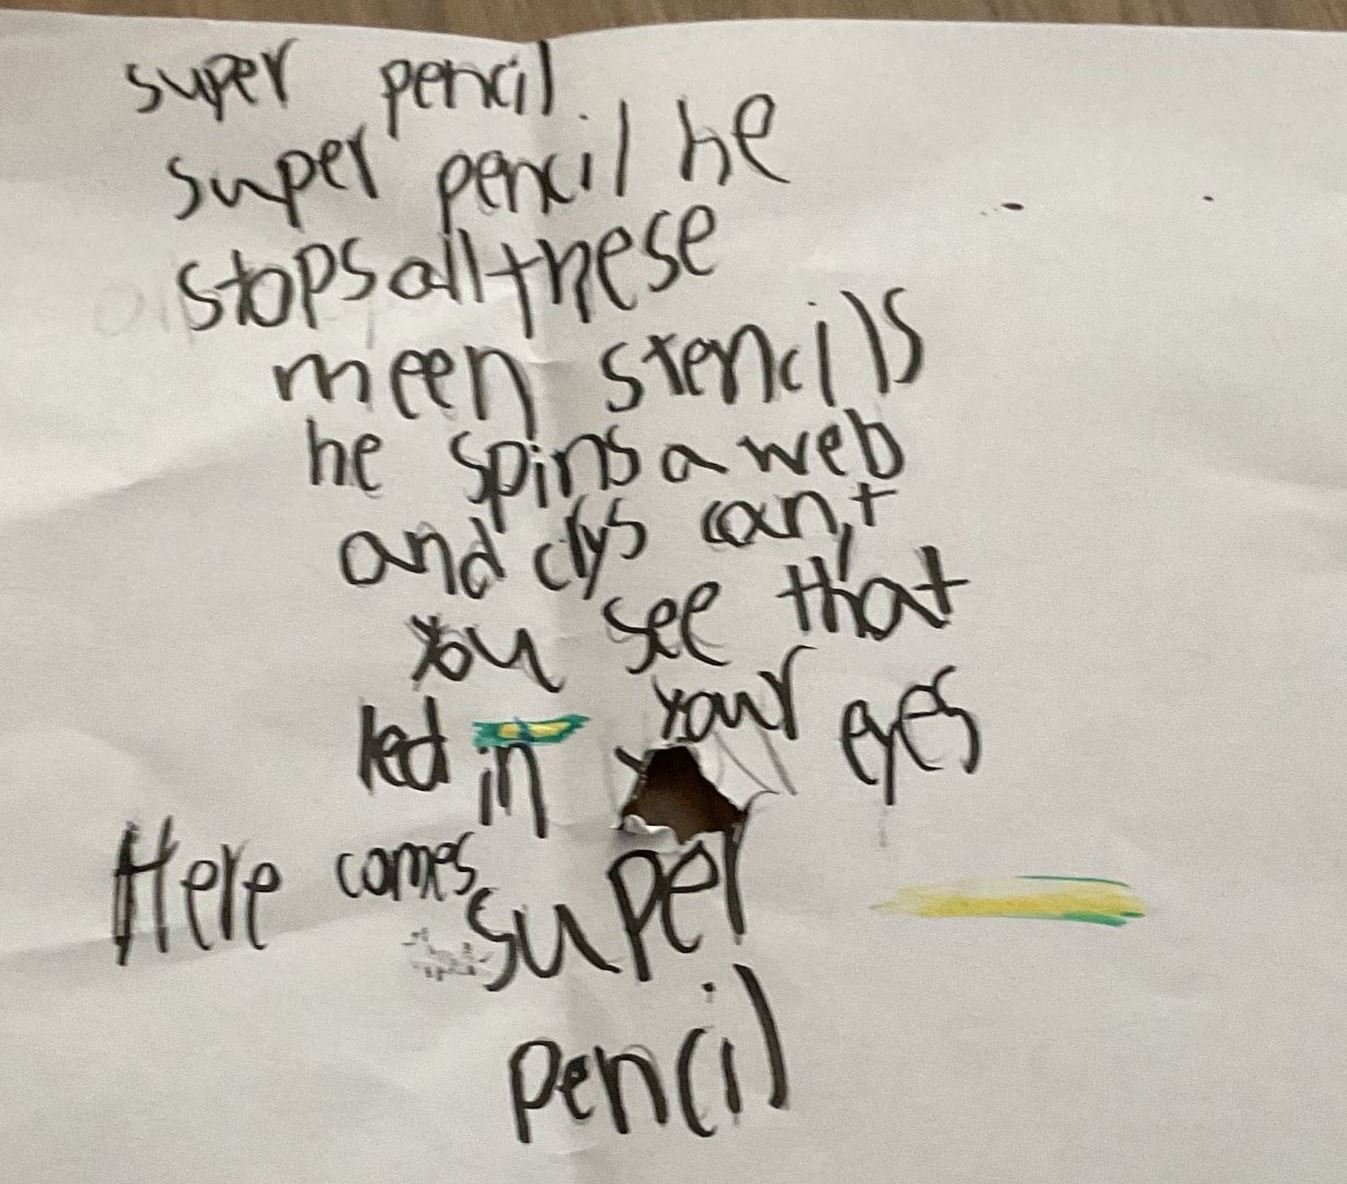 super pencil
super pencil he
stops all these
meen stencils
he spins a web
and clys can,t
you see that
led in your eyes
Here comes super
pencil